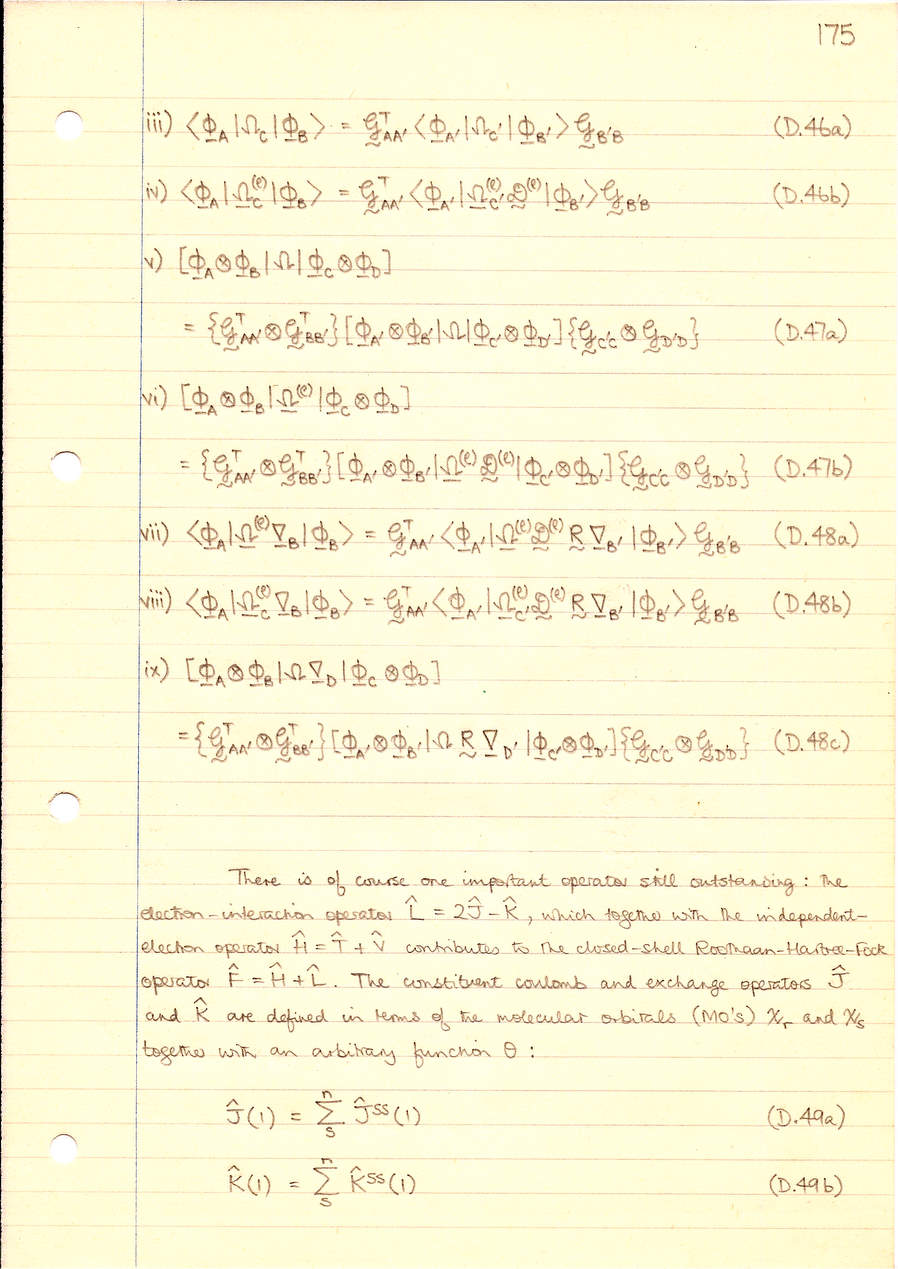 175
iii) ⟨Φ_A|Ω_C|Φ_B⟩ = 𝒢^T_AA′ ⟨Φ_A′|Ω_C′|Φ_B′⟩ 𝒢_B′B (D.46a)
iv) ⟨Φ_A|Ω_C^(ℓ)|Φ_B⟩ = 𝒢^T_AA′ ⟨Φ_A′|Ω_C′^(ℓ) 𝒟^(ℓ)|Φ_B′⟩ 𝒢_B′B (D.46b)
v) [Φ_A⊗Φ_B|Ω|Φ_C⊗Φ_D]
= {𝒢^T_AA′⊗𝒢^T_BB′}[Φ_A′⊗Φ_B′|Ω|Φ_C′⊗Φ_D′]{𝒢_C′C⊗𝒢_D′D} (D.47a)
vi) [Φ_A⊗Φ_B|Ω^(ℓ)|Φ_C⊗Φ_D]
= {𝒢^T_AA′⊗𝒢^T_BB′}[Φ_A′⊗Φ_B′|Ω^(ℓ) 𝒟^(ℓ)|Φ_C′⊗Φ_D′]{𝒢_C′C⊗𝒢_D′D} (D.47b)
vii) ⟨Φ_A|Ω^(ℓ)∇_B|Φ_B⟩ = 𝒢^T_AA′ ⟨Φ_A′|Ω^(ℓ) 𝒟^(ℓ) R ∇_B′|Φ_B′⟩ 𝒢_B′B (D.48a)
viii) ⟨Φ_A|Ω_C^(ℓ)∇_B|Φ_B⟩ = 𝒢^T_AA′ ⟨Φ_A′|Ω_C′^(ℓ) 𝒟^(ℓ) R ∇_B′|Φ_B′⟩ 𝒢_B′B (D.48b)
ix) [Φ_A⊗Φ_B|Ω∇_D|Φ_C⊗Φ_D]
= {𝒢^T_AA′⊗𝒢^T_BB′}[Φ_A′⊗Φ_B′|Ω R ∇_D′|Φ_C′⊗Φ_D′]{𝒢_C′C⊗𝒢_D′D} (D.48c)
There is of course one important operator still outstanding : the
electron-interaction operator L̂ = 2Ĵ-K̂, which together with the independent-
electron operator Ĥ = T̂ + V̂ contributes to the closed-shell Roothaan-Hartree-Fock
operator F̂ = Ĥ + L̂. The constituent coulomb and exchange operators Ĵ
and K̂ are defined in terms of the molecular orbitals (MO's) χ_r and χ_s
together with an arbitrary function θ :
Ĵ(1) = Σ_s^n Ĵ^ss(1) (D.49a)
K̂(1) = Σ_s^n K̂^ss(1) (D.49b)